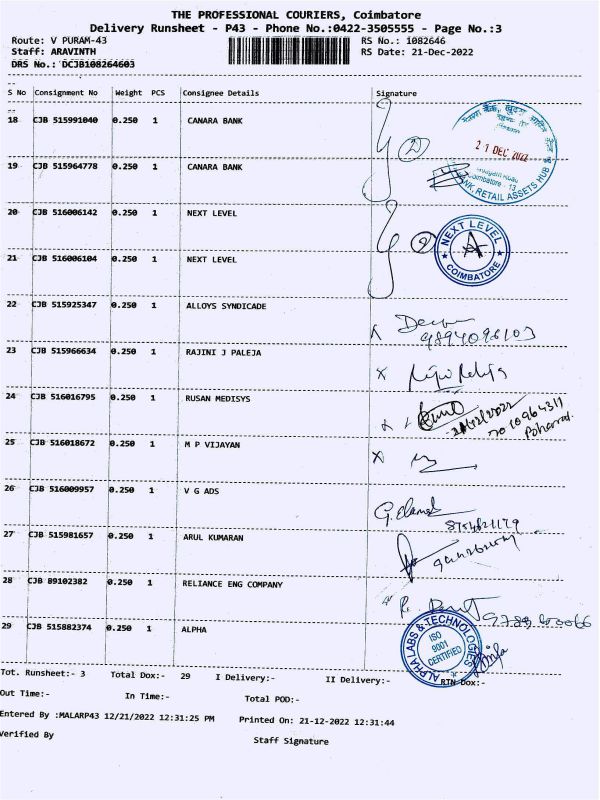 THE PROFESSIONAL COURIERS, Coimbatore
Delivery Runsheet - P43 - Phone No.:0422-3505555 - Page No.:3
Route: V PURAM-43 RS No.: 1082646
Staff: ARAVINTH RS Date: 21-Dec-2022
DRS No.: DCJB108264603
S No Consignment No Weight PCS Consignee Details Signature
18 CJB 515991040 0.250 1 CANARA BANK
21 DEC 2022
19 CJB 515964778 0.250 1 CANARA BANK
Coimbatore - 13
BANK, RETAIL ASSETS HUB
20 CJB 516006142 0.250 1 NEXT LEVEL
NEXT LEVEL
COIMBATORE
21 CJB 516006104 0.250 1 NEXT LEVEL
22 CJB 515925347 0.250 1 ALLOYS SYNDICADE
9894096103
23 CJB 515966634 0.250 1 RAJINI J PALEJA
24 CJB 516016795 0.250 1 RUSAN MEDISYS
21/12/2022
7010964311
25 CJB 516018672 0.250 1 M P VIJAYAN
26 CJB 516009957 0.250 1 V G ADS
8754821179
27 CJB 515981657 0.250 1 ARUL KUMARAN
28 CJB 89102382 0.250 1 RELIANCE ENG COMPANY
29 CJB 515882374 0.250 1 ALPHA
ALPHA LABS & TECHNOLOGIES
ISO
9001
CERTIFIED
Tot. Runsheet:- 3 Total Dox:- 29 I Delivery:- II Delivery:- RTN Dox:-
Out Time:- In Time:- Total POD:-
Entered By :MALARP43 12/21/2022 12:31:25 PM Printed On: 21-12-2022 12:31:44
Verified By Staff Signature